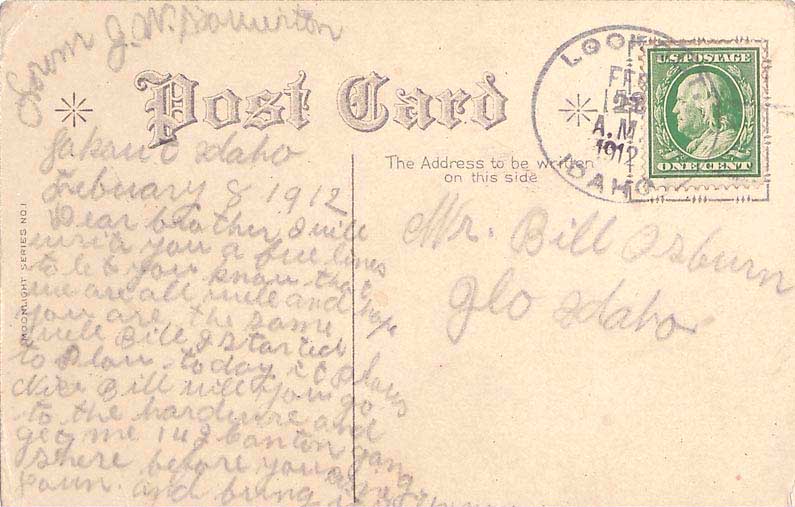 From J. W.
Post Card
The Address to be written
on this side
LOOK
FEB
A.M.
1912
IDAHO
U.S. POSTAGE
ONE CENT
MOONLIGHT SERIES NO.1
Idaho
February 8 1912
Dear brother I will
you a few lines
to let you know that
we are all well and hope
you are the same
well Bill I started
to plow today it plows
Nice Bill will you go
to the hardware and
get me 142 Canton gang
shere before you
and bring
Mr. Bill Osburn
Ilo Idaho